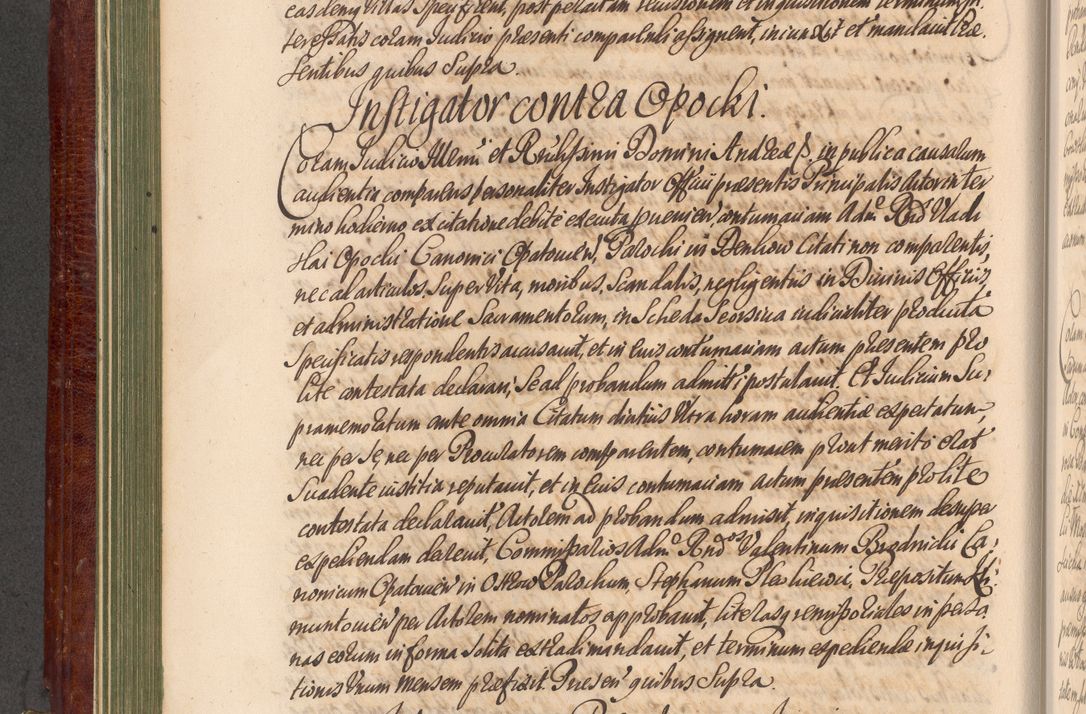 teressatis coram Judicio præsenti comparendi assignent, iniunxit et mandavit Præ
sentibus quibus Supra.
Instigator contra Opocki.
Coram Judicio Illmi et Rndissimi Domini Andreæ p. in publica causarum
audientia comparens personaliter Instigator Officii præsentis Principalis Actor in ter
mino hodierno ex citatione debite executa proveniend contumaciam Admo Rnd Vladi
slai Opocki Canonici Opatovien, Parochi in Denkow Citati non comparentis,
nec ad articulos, super Vita, moribus, Scandalis, negligentiis in Divinis Officiis,
et administratione Sacramentorum, in Scheda Seorsiva iudicialiter producta
Specificatis respondentis accusavit, et in eius contumaciam actum præsentem pro
lite contestata declarari, Se ad probandum admitti postulavit. Et Judicium Su-
pramemoratum ante omnia Citatum diutius Ultra horam audientiæ expectatum,
nec per Se, nec per Procuratorem comparentem, contumacem prout merito erat
Suadente iustitia reputavit, et in eius contumaciam actum præsentem pro lite
contestata declaravit, Actorem ad probandum admisit, inquisitionem desuper
expediendam decrevit, Commissarios Admo Rndos Valentinum Brzednicki Ca-
nonicum Opatovien in Ostrow Parochum, Stephanum Pleskiewic, Præpositum
muntovien per Actorem nominatos approbavit, literasq remissoriales in perso
nas eorum in forma Solita extradi mandavit, et terminum expediendæ inquisi-
tionis Unum mensem præfixit. Præsen quibus Supra.